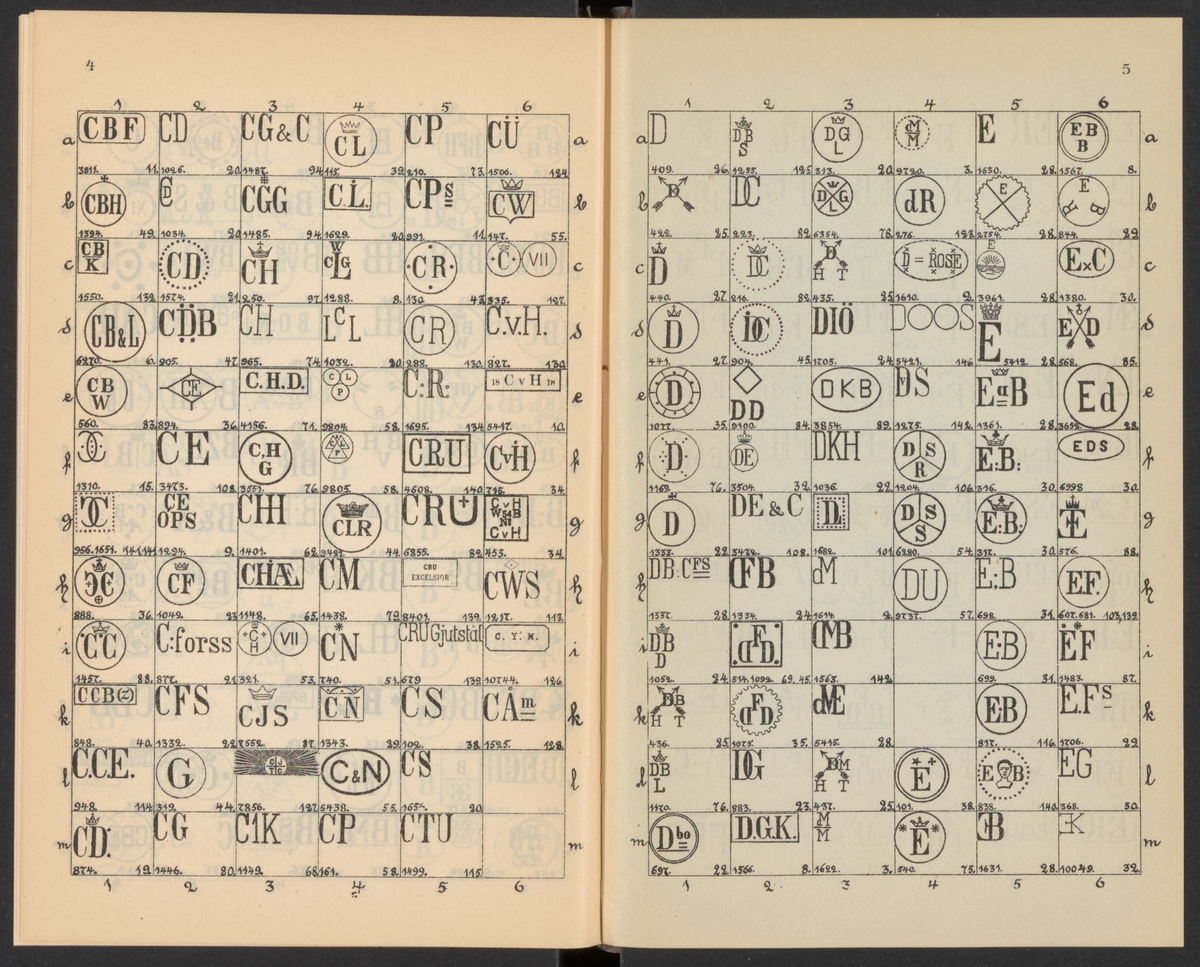 4
1 2 3 4 5 6
a CBF CD CG&C CL CP CÜ a
3811. 11. 1026. 20. 1487. 94. 115. 39. 210. 73. 1506. 124.
b CBH CD CGG C.L. CPs CW b
1394. 49. 1034. 20. 1485. 94. 1629. 20. 991. 11. 147. 55.
c CB K CD CH W CG L CR C VII c
1550. 132. 1574. 21. 250. 97. 1288. 8. 130. 43. 335. 127.
d CB&L CDB CH LCL CR C.v.H. d
6270. 6. 905. 47. 965. 74. 1032. 20. 288. 130. 827. 130.
e CB W CE C.H.D. C L P C:R: 18 C v H 18 e
560. 83. 894. 36. 4156. 71. 9804. 58. 1695. 134. 5417. 10.
f CE C,H G CRU CvH f
1310. 15. 3473. 108. 3551. 76. 9805. 58. 4608. 140. 715. 34.
g CE OPS CHH CLR CRU CvH W54B N1 CvH g
956.1651. 141,141. 1294. 9. 1401. 62. 9481. 44. 6855. 82. 453. 34.
h CF CHÆ CM CRU EXCELSIOR CWS h
888. 36. 1049. 23. 1148. 65. 1438. 79. 8401. 139. 1217. 112.
i CC C:forss C H VII CN CRUGjutstål C. Y. M. i
1457. 88. 877. 21. 321. 53. 740. 20. 679 139. 10744. 126.
k CCB CFS CJS CN CS CÅm k
848. 40. 1332. 22. 7552. 87. 1343. 29. 102. 38. 1525. 128.
l C.C.E. G C J T C C&N CS l
948. 114. 319. 44. 7856. 127. 5438. 55. 20.
m CD. CG C1K CP CTU m
874. 19. 1446. 80. 1149. 68. 161. 58. 1499. 115.
1 2 3 4 5 6
5
1 2 3 4 5 6
a D DB S DG L M E EB B a
409. 26. 1255. 125. 313. 20. 9720. 3. 1630. 28. 1567. 8.
b D DC D G L dR E E B B b
422. 25. 223. 82. 6354. 78. 276. 123. 2754. 28. 844. 29.
c D DC D H T D = ROSE E E×C c
440. 27. 216. 82. 435. 25. 1610. 9. 3961. 28. 1380. 30.
d D DC DIÖ DOOS E E D d
441. 27. 904. 45. 1705. 24. 5421. 146. 5412. 28. 568. 85.
e D DD DKB DS EaB Ed e
1077. 35. 9100. 84. 3854. 89. 1275. 142. 1361. 28. 3652. 28.
f D DE DKH D S R E:B: EDS f
1169. 76. 3504. 32. 1036. 22. 1204. 106. 316. 30. 6998 30.
g D DE & C DL D S S E:B: g
1333. 22. 3472. 108. 1682. 101. 6280. 54. 317. 30. 576. 88.
h DB:CFS DFB dM DU E:B EF. h
1537. 28. 1334. 24. 1614. 9. 9737. 57. 698. 31. 607.681. 103,139.
i DB D dFD. DMB E·B EF i
1052. 24. 514.1092. 69.45. 1563. 142. 699. 31. 1483. 87.
k DB H T dFD E·B E.Fs k
436. 25. 1075. 35. 5415. 28. 817. 116. 1706. 29.
l DB L DG DM H T E E B EG l
1170. 76. 883. 23. 437. 25. 101. 38. 838. 140. 368. 50.
m Dbo D.G.K. M M E m
697. 22. 1566. 8. 1622. 3. 540. 75. 1631. 28. 10049. 32.
1 2 3 4 5 6